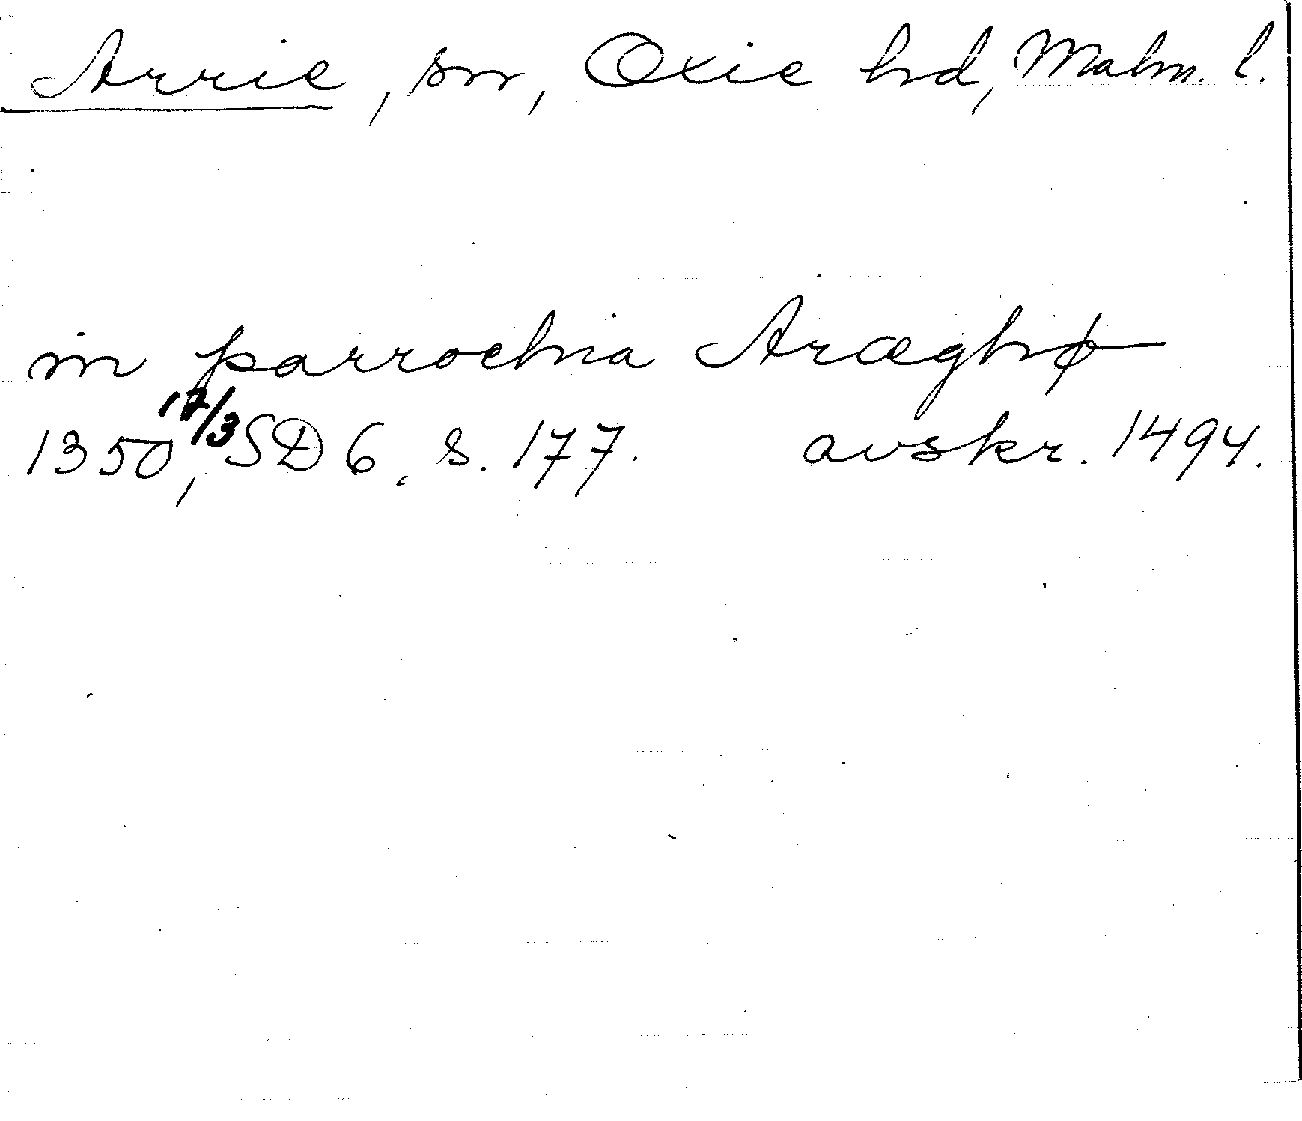 Arrie, sn, Oxie hd, Malm. l.
in parrochia Aræghø
1350 17/3, SD 6, s. 177. avskr. 1494.